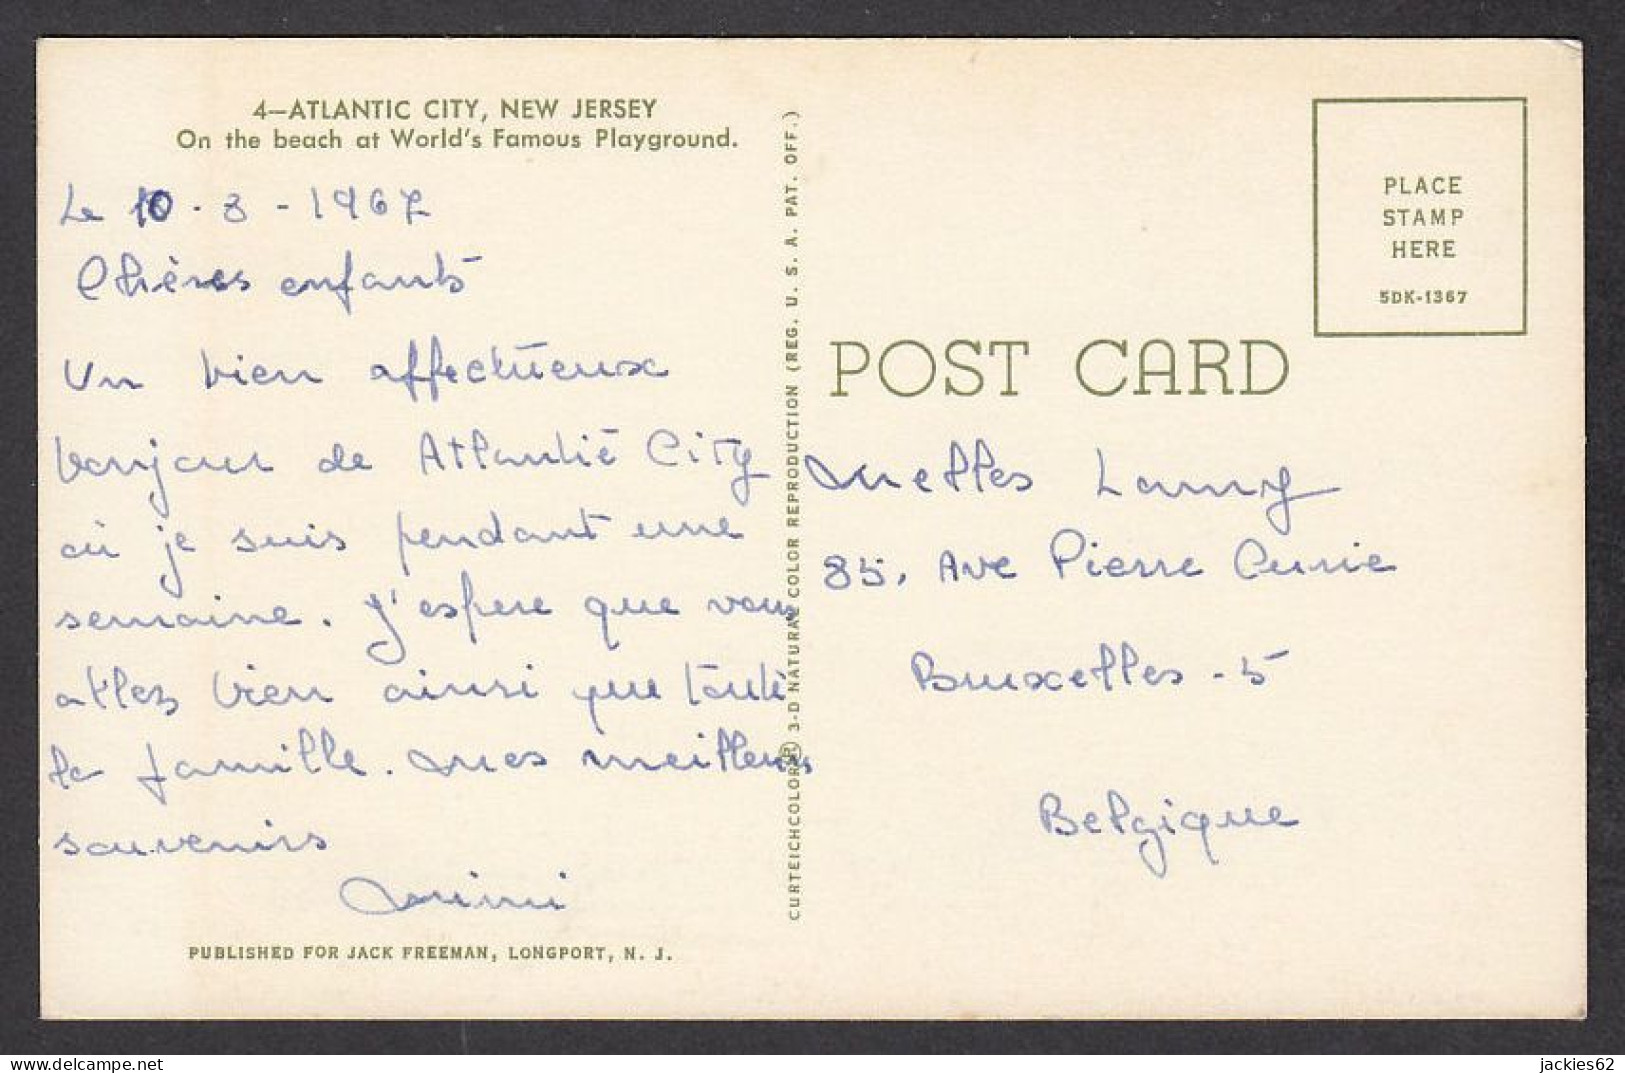 4—ATLANTIC CITY, NEW JERSEY
On the beach at World's Famous Playground.
Le 10-8-1967
Chères enfants
Un bien affectueux
bonjour de Atlantic City
où je suis pendant une
semaine. J'espere que vous
allez bien ainsi que toute
la famille. Mes meilleurs
souvenirs
Mimi
PUBLISHED FOR JACK FREEMAN, LONGPORT, N. J.
CURTEICHCOLOR® 3-D NATURAL COLOR REPRODUCTION (REG. U. S. A. PAT. OFF.)
PLACE
STAMP
HERE
5DK-1367
POST CARD
Melles Lamy
85, Ave Pierre Curie
Bruxelles-5
Belgique
jackies62